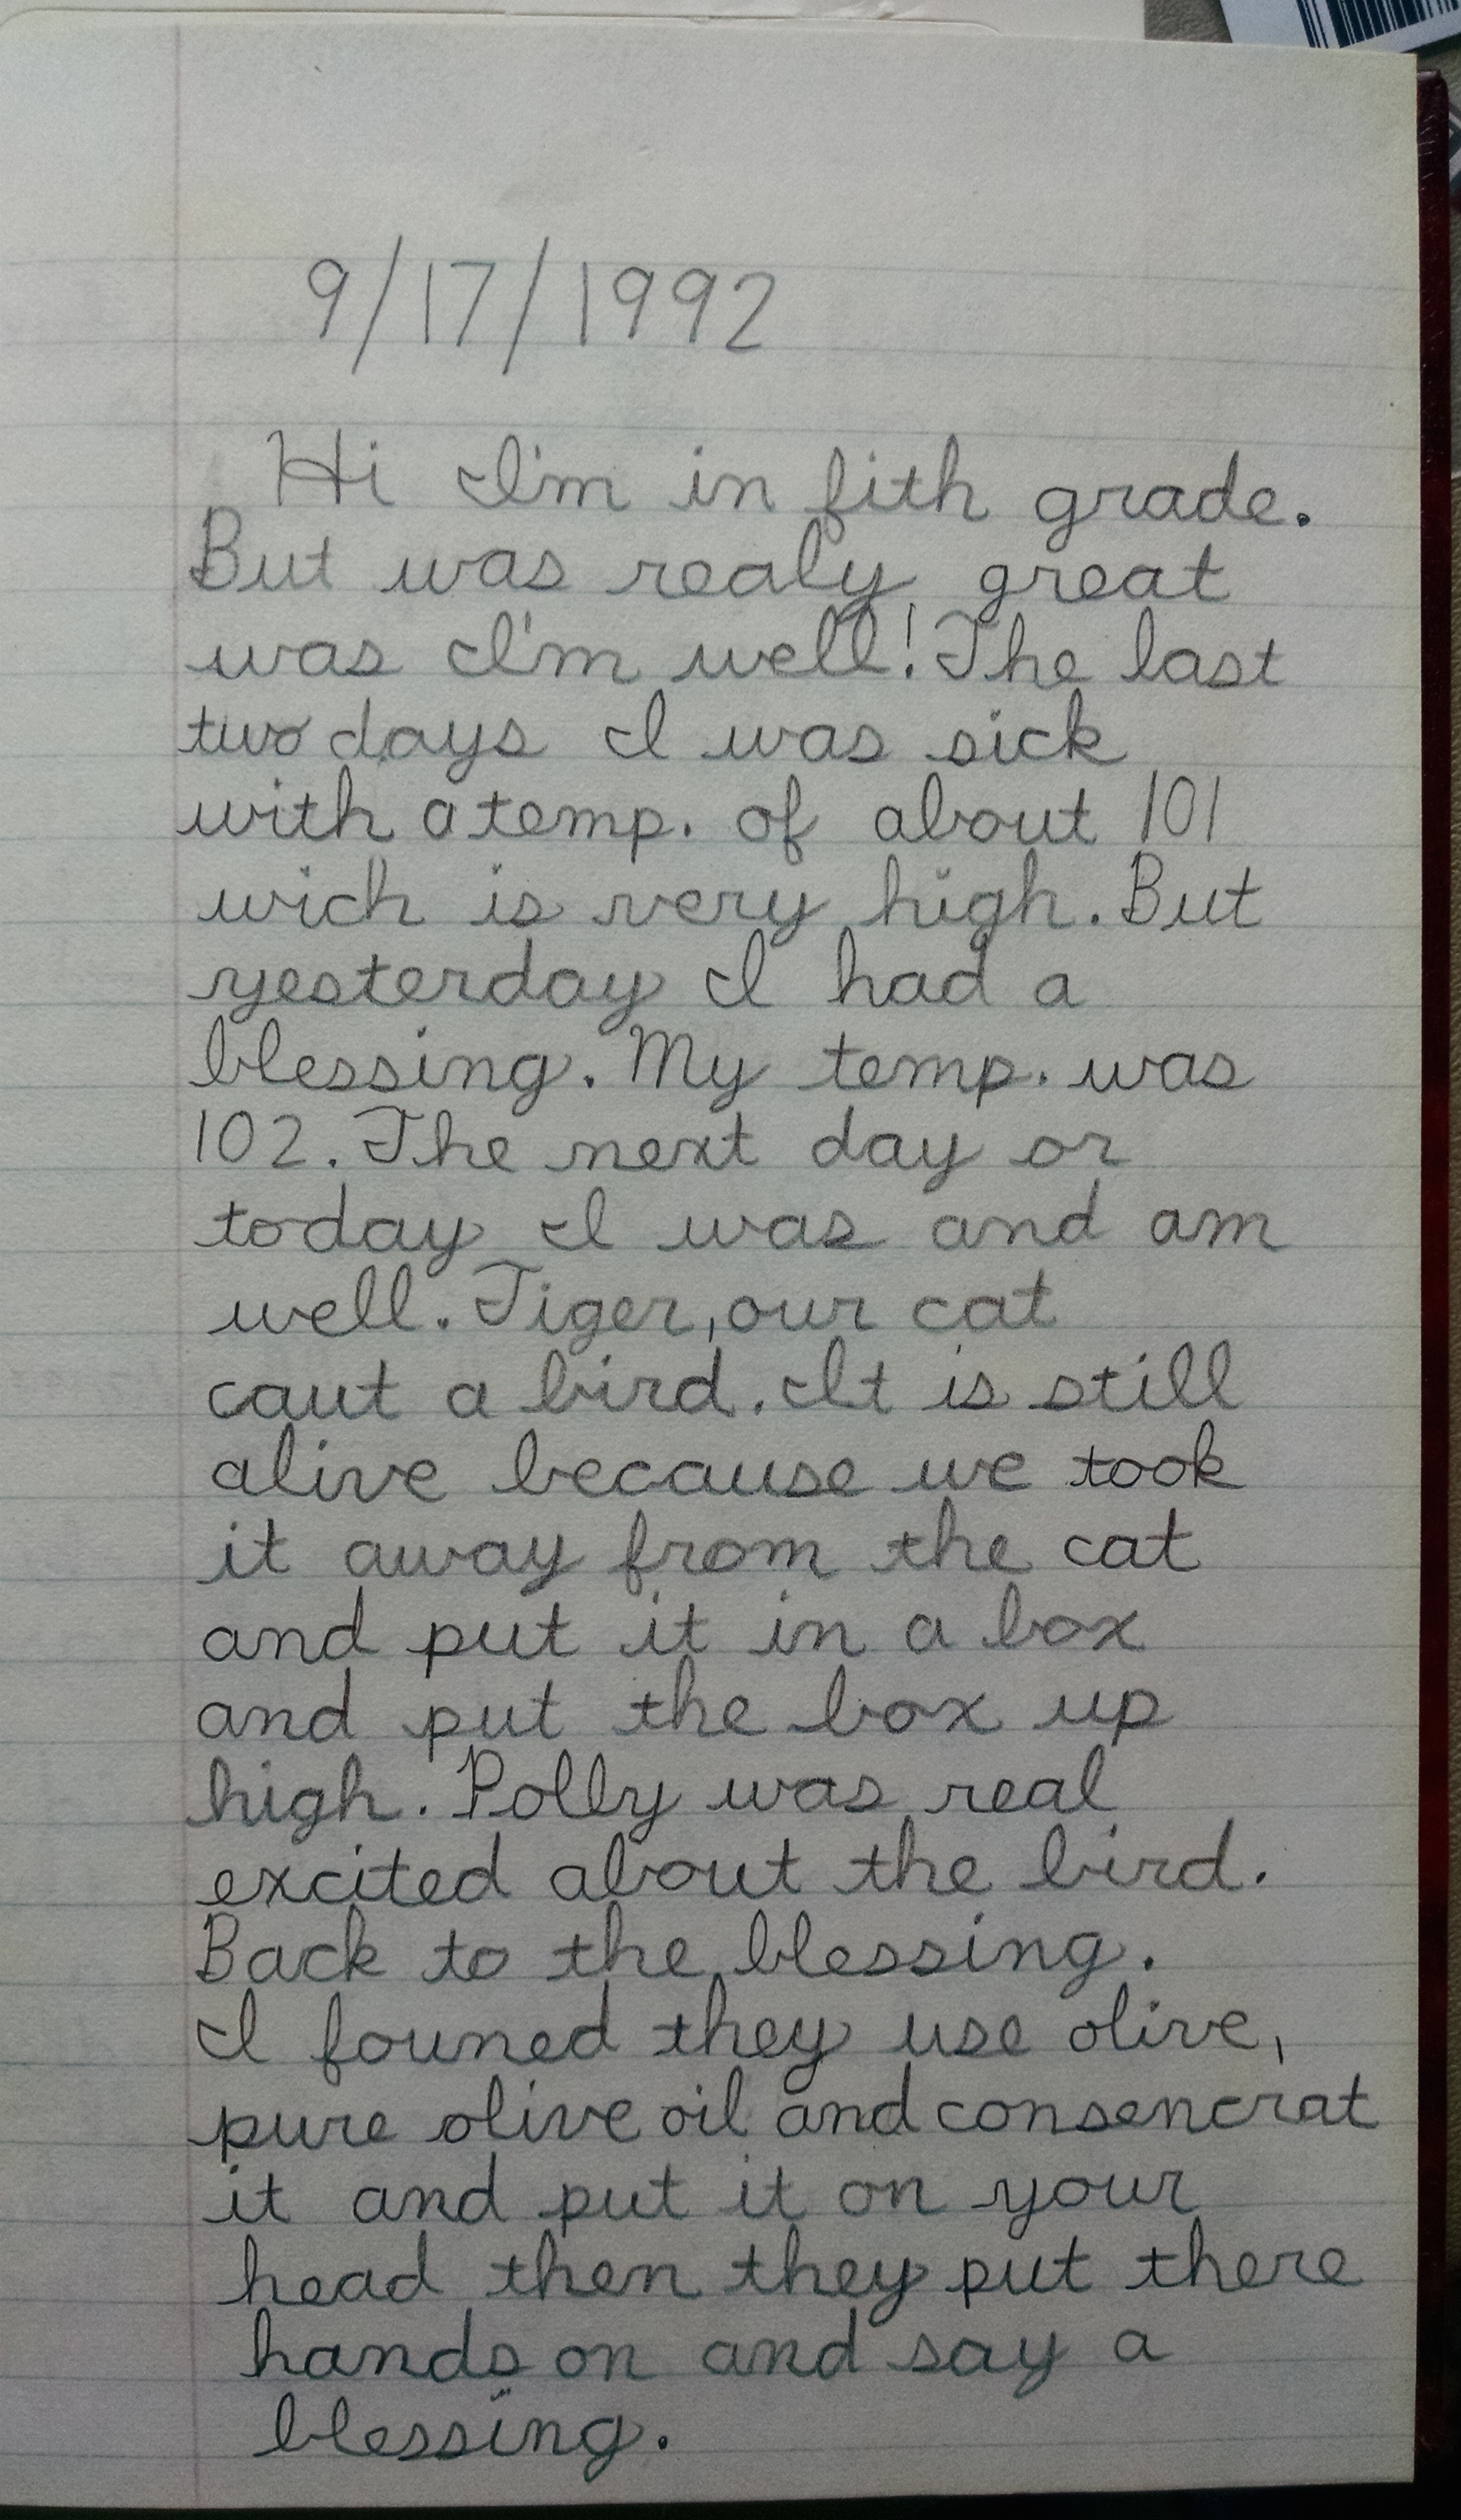 9/17/1992
Hi I'm in fith grade.
But was realy great
was I'm well! The last
two days I was sick
with a temp. of about 101
wich is very high. But
yesterday I had a
blessing. My temp. was
102. The next day or
today I was and am
well. Tiger, our cat
caut a bird. It is still
alive because we took
it away from the cat
and put it in a box
and put the box up
high. Polly was real
excited about the bird.
Back to the blessing.
I founed they use olive,
pure olive oil and consencrat
it and put it on your
head then they put there
hands on and say a
blessing.